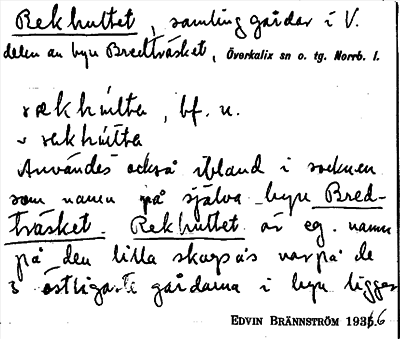 Rekhultet, samling gårdar i V.
delen av byn Bredträsket, Överkalix sn o. tg. Norrb. l.
rækhúlta, bf. u.
v rækhúlta
Användes också ibland i socknen
som namn på själva byn Bred-
träsket. Rekhultet är eg. namn
på den lilla skogsås varpå de
3 östligaste gårdarna i byn ligger
EDVIN BRÄNNSTRÖM 1936